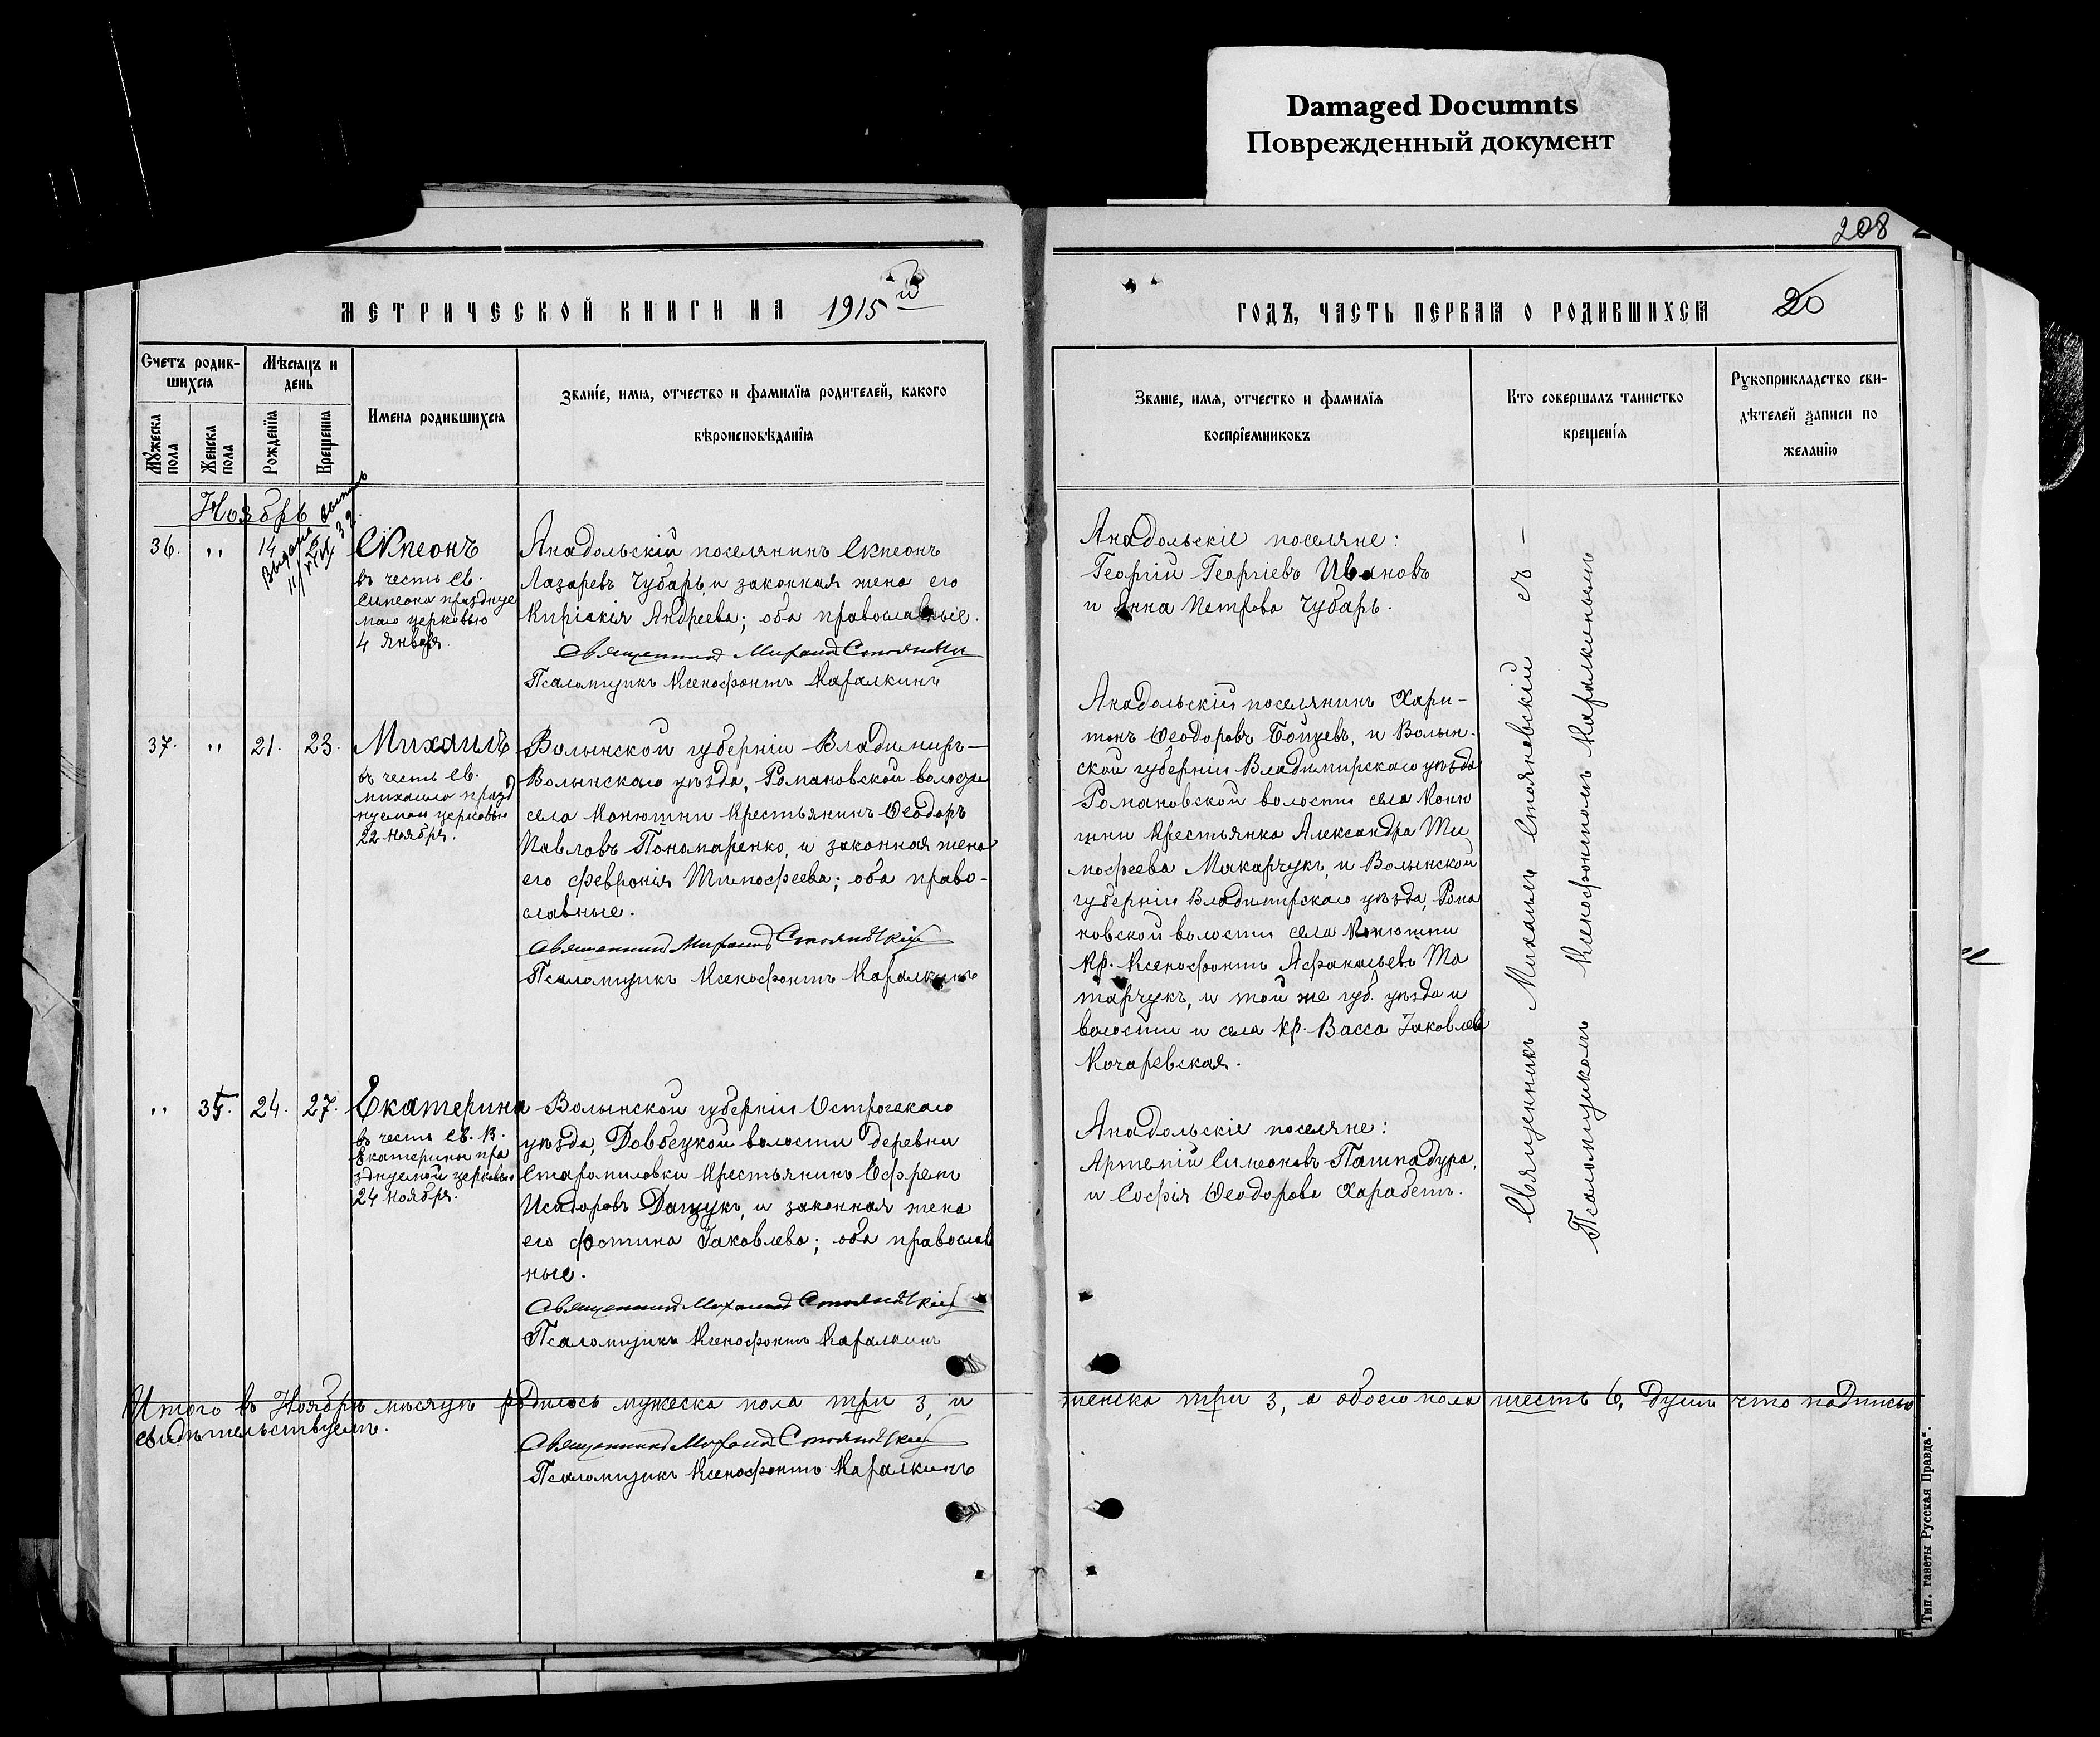 Damaged Documnts
Поврежденный документ
208
МЕТРИЧЕСКОЙ КНИГИ НА 1915й
Счетъ родив-
шихся
Мѣсяцъ и
день
Мужеска
пола
Женска
пола
Рожденія
Крещенія
Имена родившихся
Званіе, имя, отчество и фамилія родителей, какого
вѣроисповѣданія
Ноябрь
36. " 14
Выдана выпись
Симеонъ
въ честь Св.
Симеона празднуе
маго церковью
4 Января.
Анадольскій поселянинъ Симеонъ
Лазаревъ Чубарь, и законная жена его
Киріакія Андреева; оба православные.
Священникъ Михаилъ Стояновскій
Псаломщикъ Ксенофонтъ Каралкинъ
37. " 21. 23. Михаилъ
въ честь Св.
Михаила празд
нуемаго церковью
22 Ноября.
Волынской губерніи Владимиръ-
Волынскаго уѣзда, Романовской волости
села Конюшни крестьянинъ Ѳеодоръ
Павловъ Пономаренко, и законная жена
его Февронія Тимофеева; оба право-
славные.
Священникъ Михаилъ Стояновскій
Псаломщикъ Ксенофонтъ Каралкинъ
" 35. 24. 27. Екатерина
въ честь Св. В.
Екатерины пра
зднуемой церковью
24 Ноября.
Волынской губерніи Острогскаго
уѣзда, Довбецкой волости деревни
Старомиловки крестьянинъ Ефремъ
Исидоровъ Дащукъ, и законная жена
его Фотина Іаковлева; оба православ
ные.
Священникъ Михаилъ Стояновскій
Псаломщикъ Ксенофонтъ Каралкинъ
Итого въ Ноябрѣ мѣсяцѣ родилось мужеска пола три 3, и
свидѣтельствуемъ.
Священникъ Михаилъ Стояновскій
Псаломщикъ Ксенофонтъ Каралкинъ
ГОДЪ, ЧАСТЬ ПЕРВАЯ О РОДИВШИХСЯ 20
Званіе, имя, отчество и фамилія
воспріемниковъ
Кто совершалъ таинство
крещенія
Рукоприкладство сви-
дѣтелей записи по
желанію
Анадольскіе поселяне:
Георгій Георгіевъ Ивановъ
и Анна Петрова Чубарь.
Анадольскій поселянинъ Хари-
тонъ Ѳеодоровъ Бойцевъ, и Волын-
ской губерніи Владимирскаго уѣзда
Романовской волости села Коню
шни крестьянка Александра Ти
мофеева Макарчукъ, и Волынской
губерніи Владимирскаго уѣзда, Рома
новской волости села Конюшни
кр. Ксенофонтъ Афанасьевъ Та
тарчукъ, и той же губ. уѣзда и
волости и села кр. Васса Іаковлева
Кочаревская.
Анадольскіе поселяне:
Артемій Симеоновъ Пампадура,
и Софія Ѳеодорова Харабетъ.
Священникъ Михаилъ Стояновскій съ –
Псаломщикомъ Ксенофонтомъ Каралкинымъ
женска три 3, а обоего пола шесть 6, душъ что подписью
Тип. газеты „Русская Правда“.